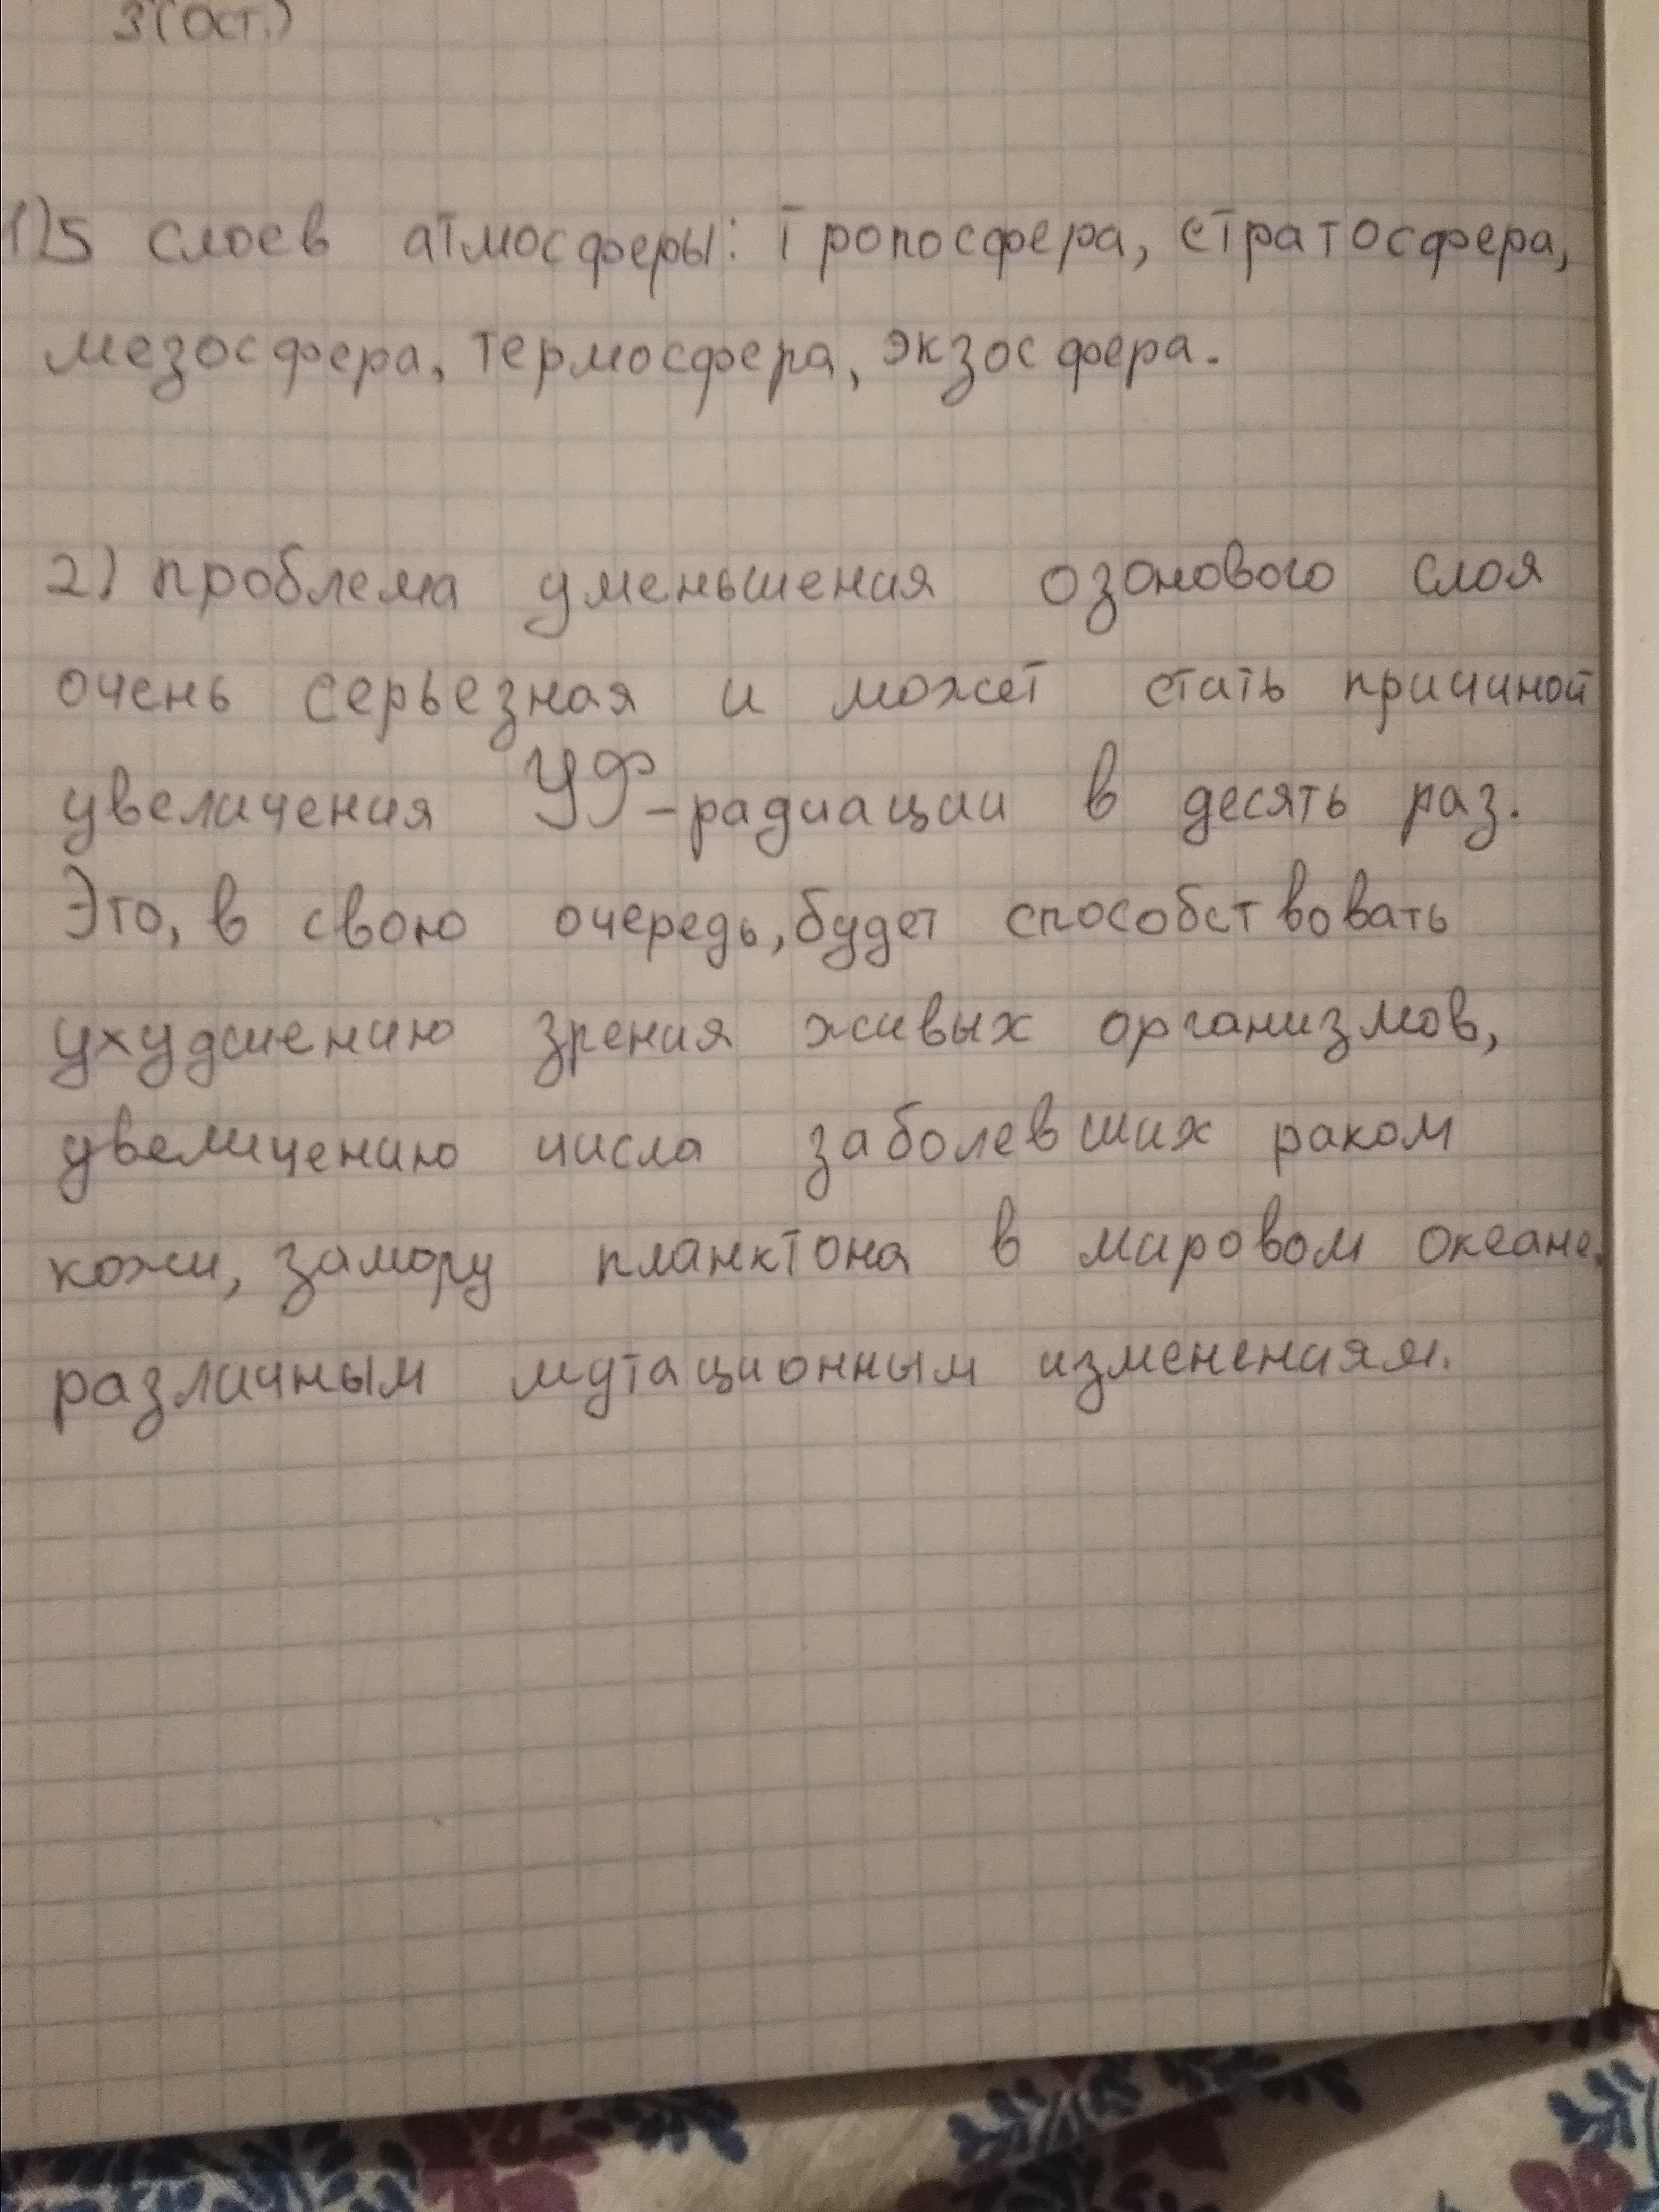 3(ост.)
1)5 слоев атмосферы: тропосфера, стратосфера,
мезосфера, термосфера, экзосфера.
2) проблема уменьшения озонового слоя
очень серьезная и может стать причиной
увеличения УФ-радиации в десять раз.
Это, в свою очередь, будет способствовать
ухудшению зрения живых организмов,
увеличению числа заболевших раком
кожи, замору планктона в мировом океане,
различным мутационным изменениям.